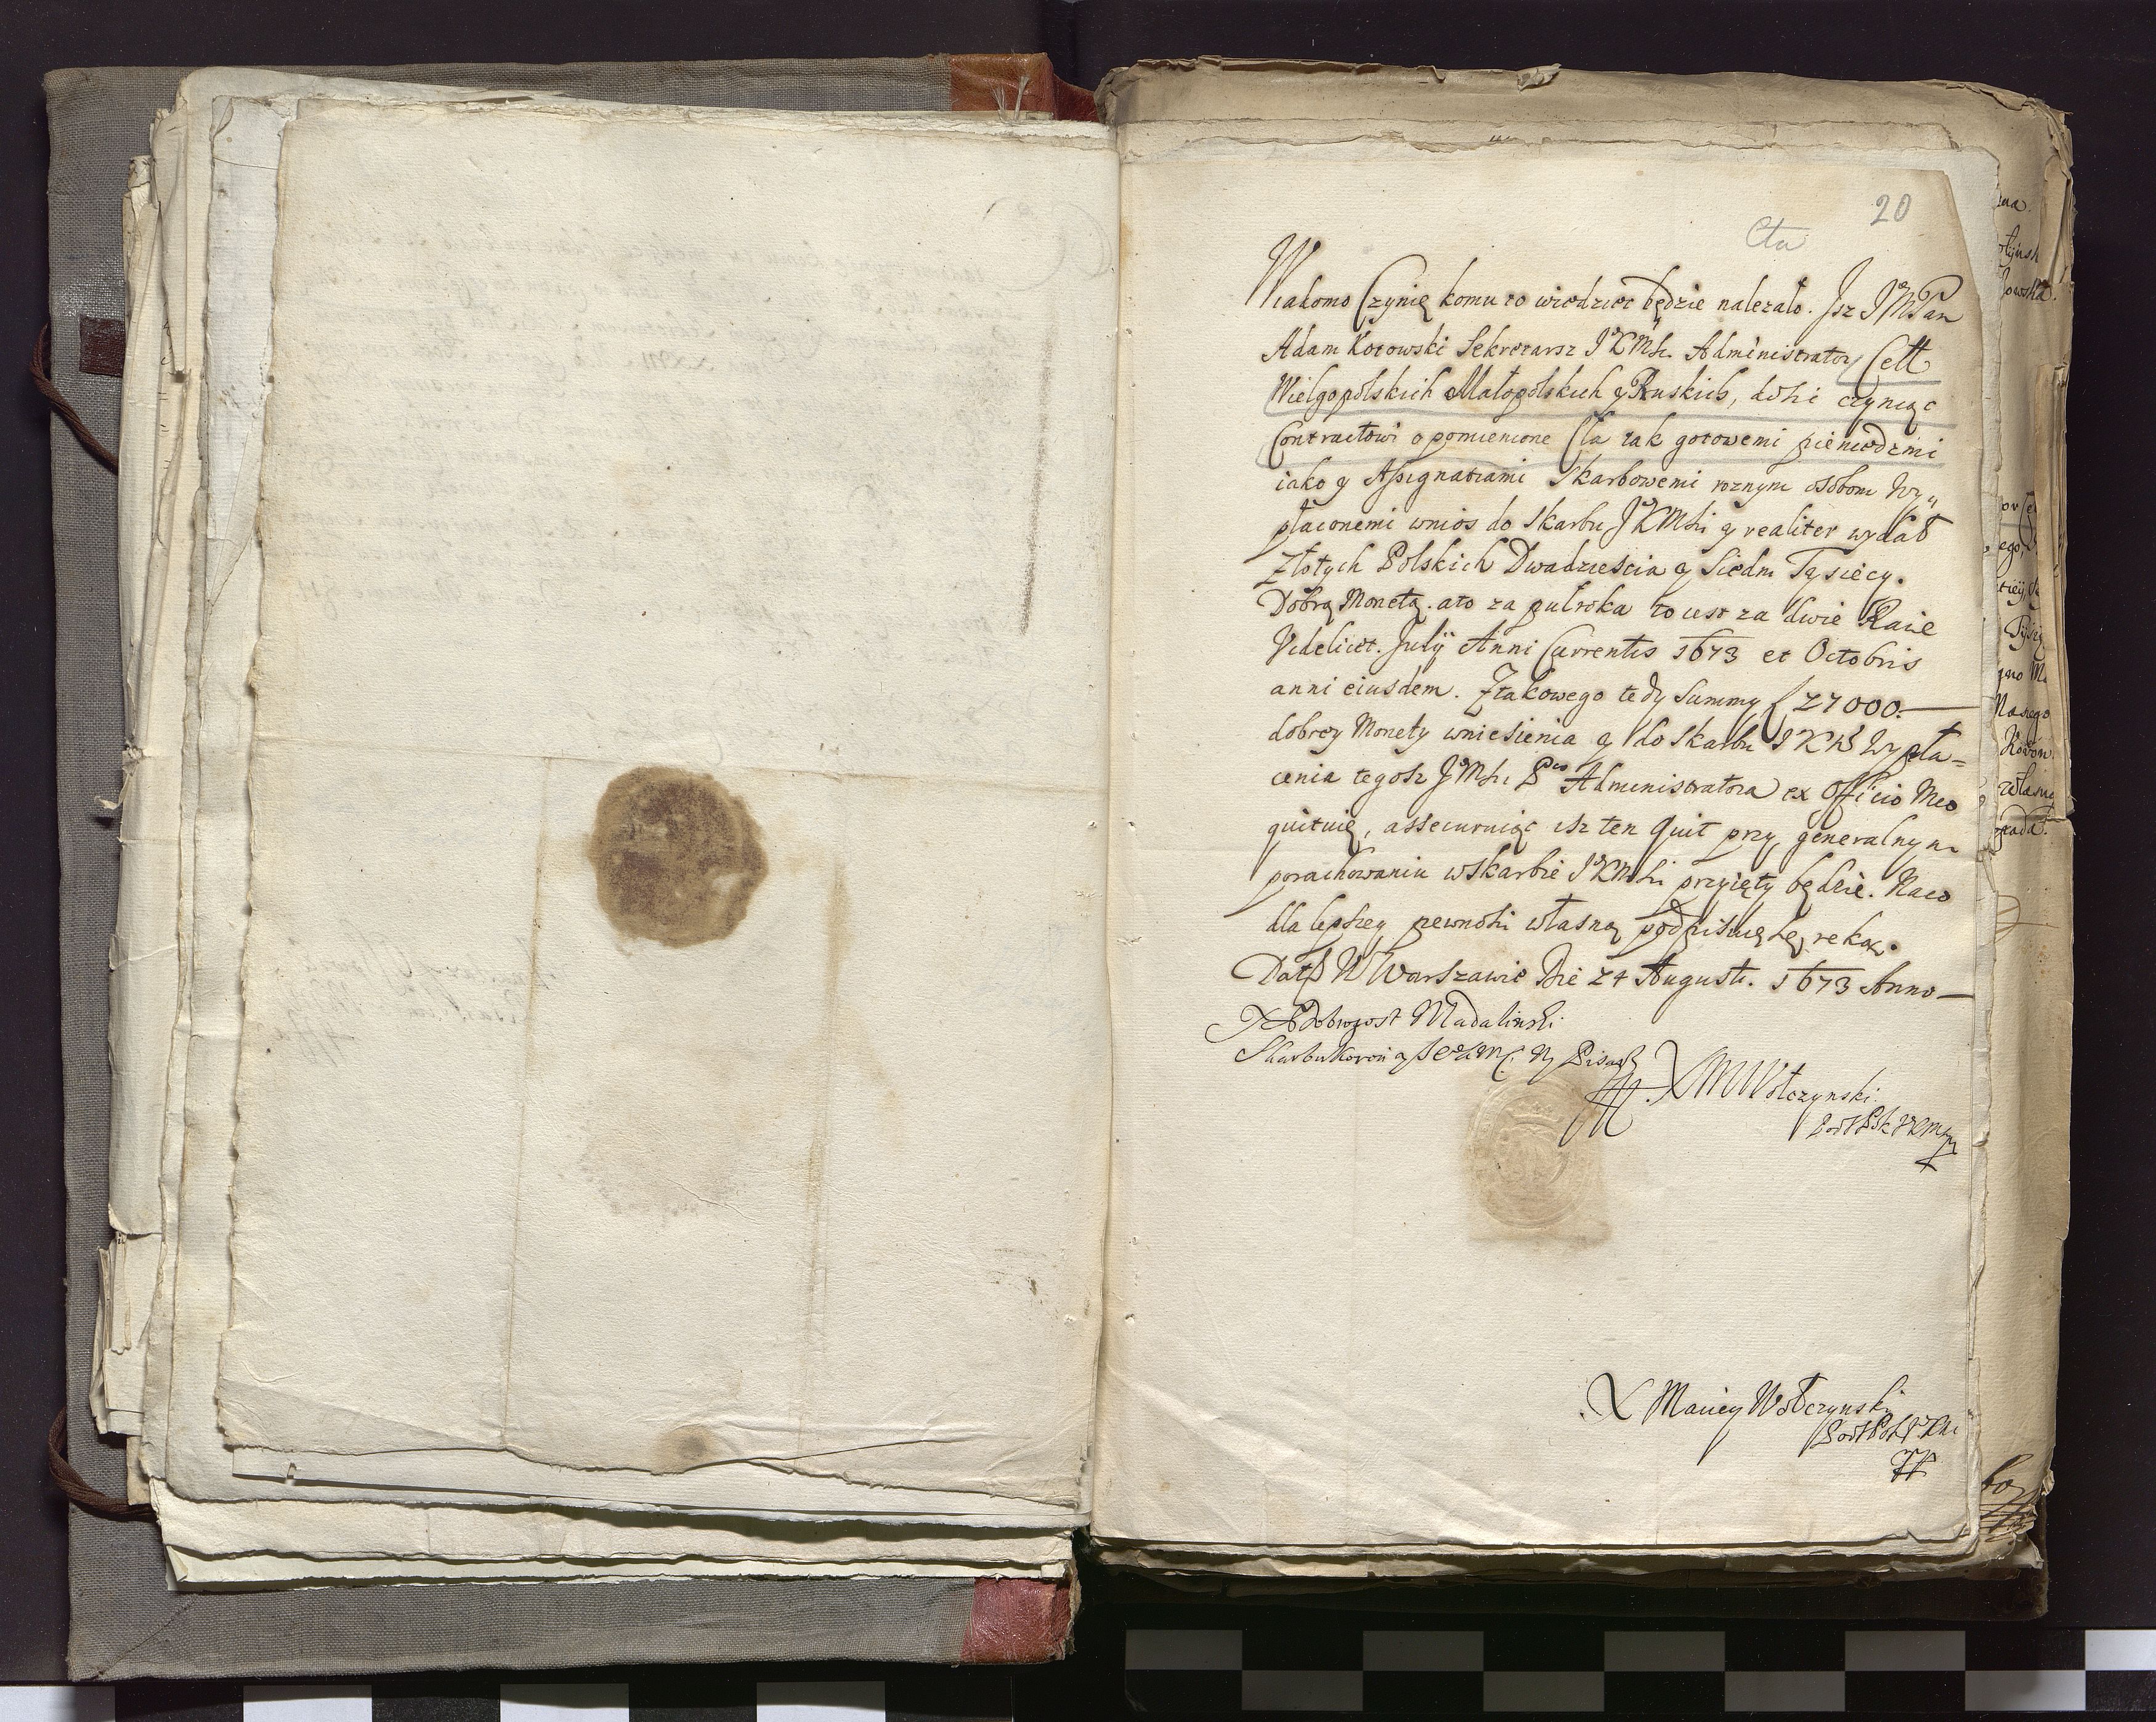 20
Cła
Wiadomo Czynię komu to wiedziec będzie nalezało. Jsz JMPan
Adam Kotowski Sekretarsz JKMsci Administrator Cełł
Wielgopolskich Małopolskich y Ruskich, dosic czyniąc
Contractowi o pomienione Cła tak gotowemi pieniędzmi
iako y Assignatiami Skarbowemi roznym osobom Wy„
płaconemi wniós do Skarbu JKMsci y realiter wydał
Złotych Polskich Dwadziescia y Siedm Tysiecy.
Dobrą Monetą. ato za pułroka to iest za dwie Racie
Videlicet. Julÿ Anni Currentis 1673 et Octobris
anni eiusdem. Ztakowego tedy Summy f 27000.—
dobrey Monety wniesienia y do Skarbu JKM Wypła=
cenia tegosz JMsci Pa Administratora ex Officio Meo
quituię, assecuruiąc isz ten Quit przy generalnym
porachowaniu wskarbie JKMsci przyięty będzie. Naco
dla lepszey pewnosci własną podpisuię się reką.
Datt W Warszawie Die 24 Augusti. 1673 Anno—
Dobrogost Madalinski
Skarbu Koron y Pisarz
X M Wołczynski
X Maciey Wołczynski